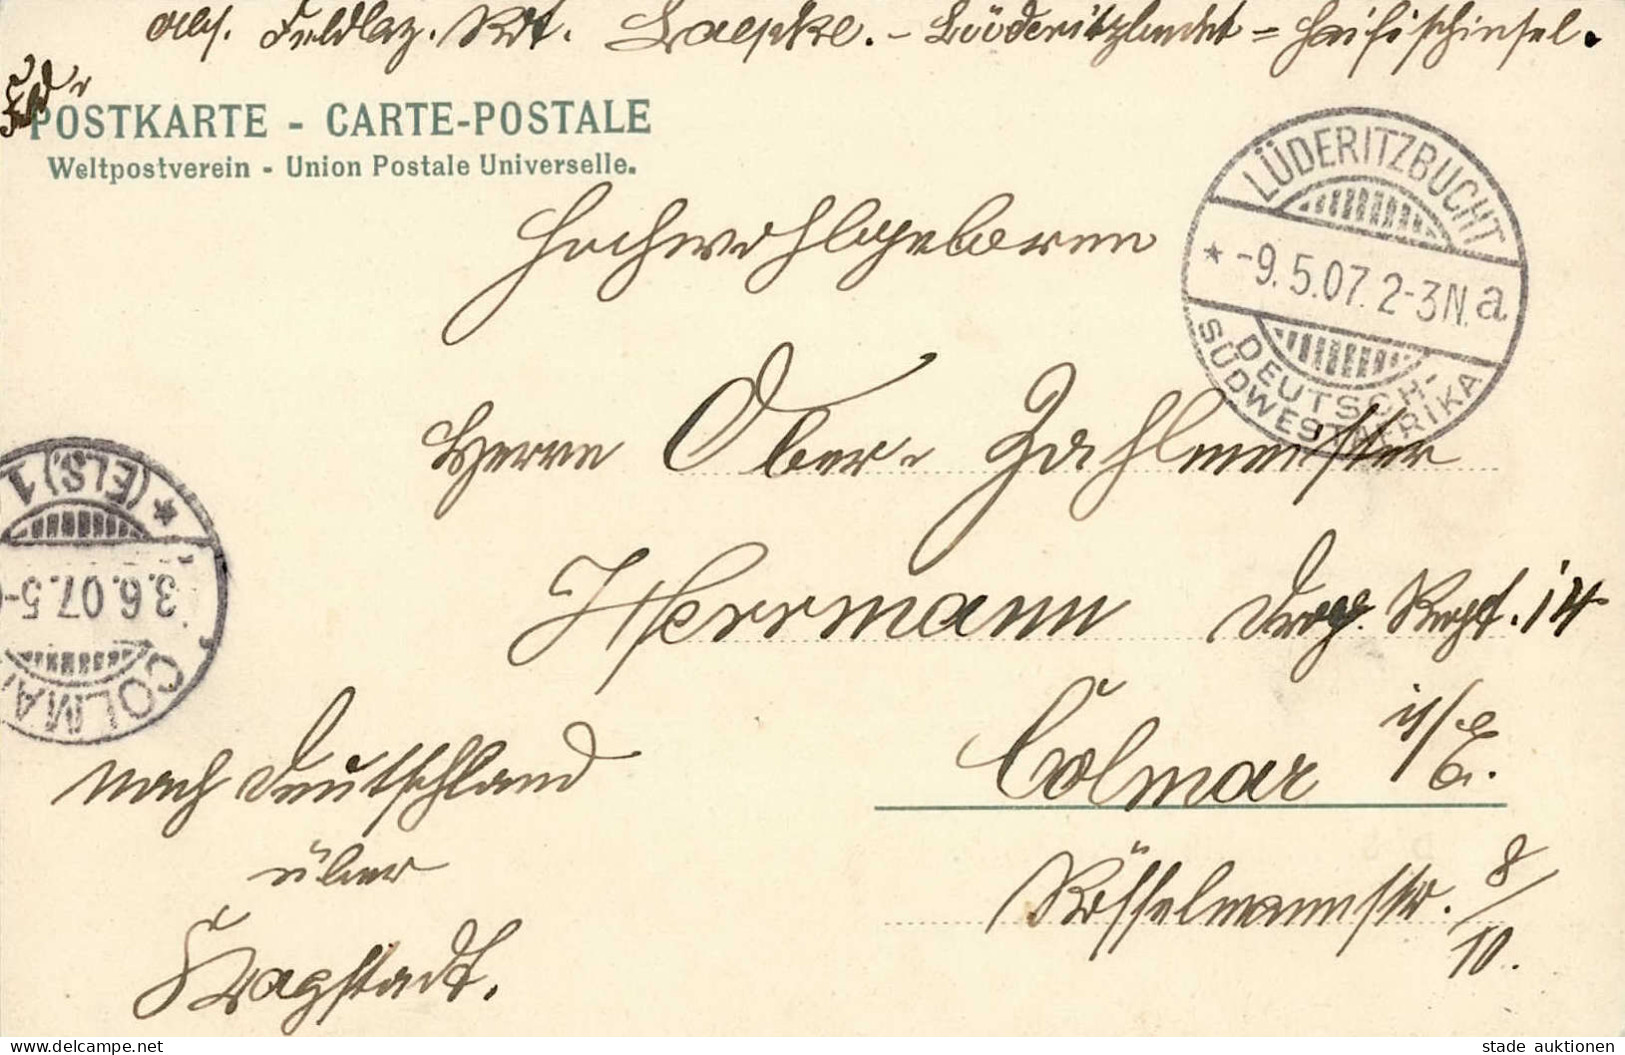 Abs. Feldlaz. Rdt. Laepke. – Lüderitzbucht = Haifischinsel.
POSTKARTE - CARTE-POSTALE
Weltpostverein - Union Postale Universelle.
LÜDERITZBUCHT
* -9.5.07. 2-3N. a
DEUTSCH-
SÜDWESTAFRIKA
Hochwohlgeboren
Herrn Ober-Zahlmeister
Herrmann Drag. Regt. 14
Colmar i/E.
Rösselmannstr. 8/10.
COLMAR
3.6.07. 5-
* (ELS.) 1
nach Deutschland
über
Kapstadt.
www.delcampe.net
stade auktionen